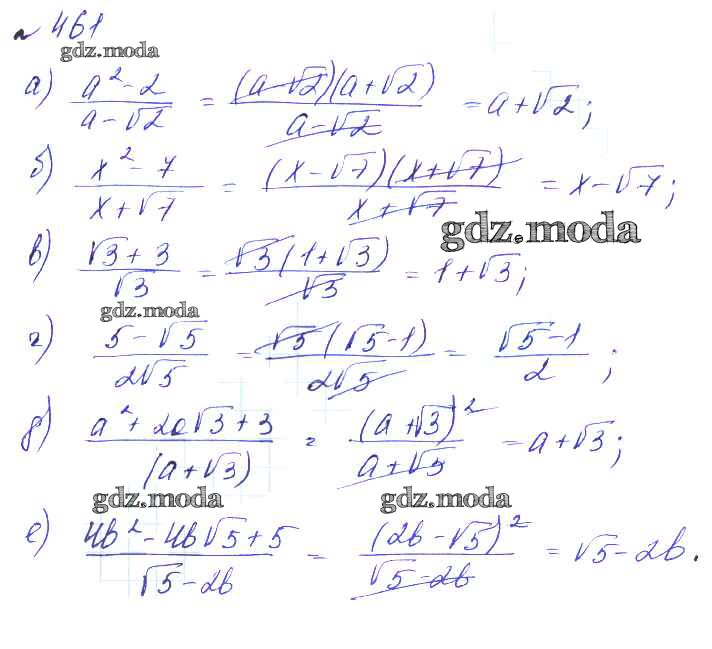 № 461
gdz.moda
а) (a² - 2)/(a - √2) = ((a - √2)(a + √2))/(a - √2) = a + √2;
б) (x² - 7)/(x + √7) = ((x - √7)(x + √7))/(x + √7) = x - √7;
gdz.moda
в) (√3 + 3)/√3 = (√3(1 + √3))/√3 = 1 + √3;
gdz.moda
г) (5 - √5)/(2√5) = (√5(√5 - 1))/(2√5) = (√5 - 1)/2;
д) (a² + 2a√3 + 3)/(a + √3) = (a + √3)²/(a + √3) = a + √3;
gdz.moda gdz.moda
е) (4b² - 4b√5 + 5)/(√5 - 2b) = (2b - √5)²/(√5 - 2b) = √5 - 2b.